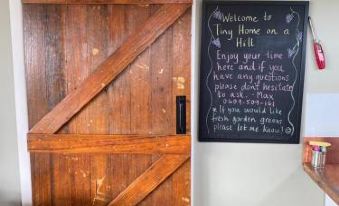 Welcome to
Tiny Home on a
Hill
Enjoy your time
here and if you
have any questions
please don't hesitate
to ask. - Max
* If you would like
fresh garden greens
please let me know!